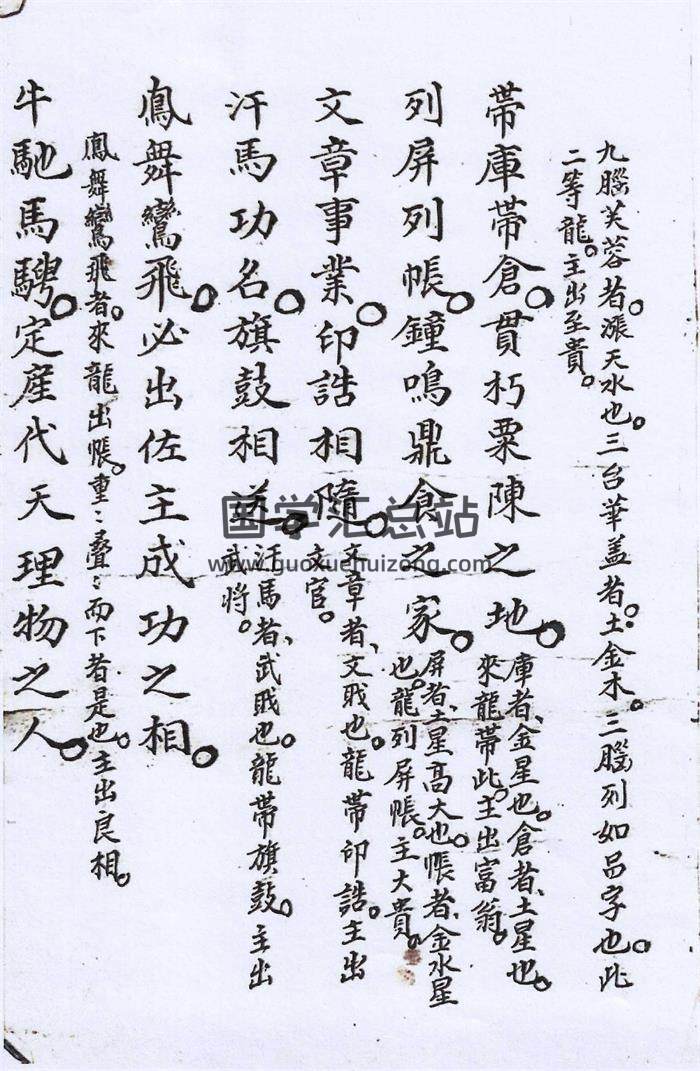 九腦芙蓉者。漲天水也。三台華盖者。土金木。三腦列如品字也。此
二等龍。主出至貴。
帶庫帶倉。貫朽粟陳之地。
庫者、金星也。倉者、土星也。
來龍帶此。主出富翁。
列屏列帳。鐘鳴鼎食之家。
屏者、土星高大也。帳者、金水星
也。龍列屏帳。主大貴。
文章事業。印誥相隨。
文章者、文戝也。龍帶印誥。主出
文官。
汗馬功名。旗鼓相逆。
汗馬者、武戝也。龍帶旗鼓。主出
武将。
鳳舞鸞飛。必出佐主成功之相。
鳳舞鸞飛者。來龍出帳。重〻叠〻而下者是也。主出良相。
牛馳馬騁。定産代天理物之人。
国学汇总站
www.guoxuehuizong.com